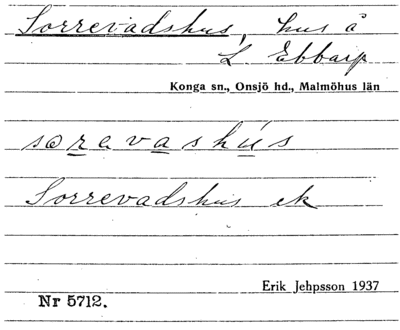 Sorrevadshus, hus å
L. Ebbarp
Konga sn., Onsjö hd., Malmöhus län
særavashús
Sorrevadshus ek
Erik Jehpsson 1937
Nr 5712.